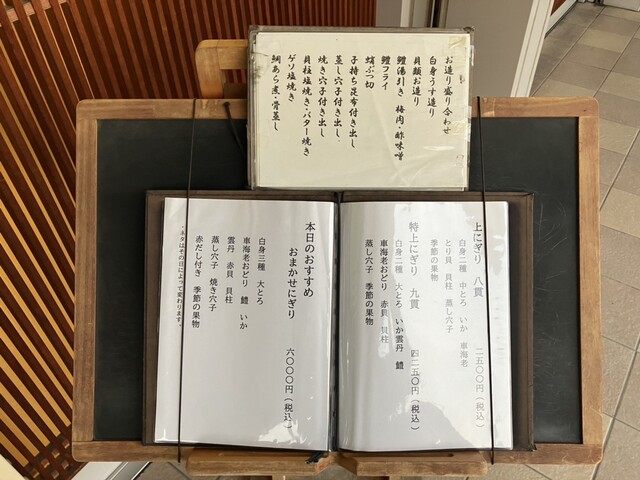 お造り盛り合わせ
白身うす造り
貝類お造り
鱧湯引き 梅肉・酢味噌
鱧フライ
蛸ぶつ切
子持ち昆布付き出し
蒸し穴子付き出し
焼き穴子付き出し
貝柱塩焼き・バター焼き
ゲソ塩焼き
鯛あら煮・骨蒸し
上にぎり 八貫 二五〇〇円(税込)
白身二種 中とろ いか 車海老
とり貝 貝柱 蒸し穴子
季節の果物
特上にぎり 九貫 四二五〇円(税込)
白身二種 大とろ いか雲丹 鱧
車海老おどり 赤貝 貝柱
蒸し穴子 季節の果物
本日のおすすめ
おまかせにぎり 六〇〇〇円(税込)
白身三種 大とろ
車海老おどり 鱧 いか
雲丹 赤貝 貝柱
蒸し穴子 焼き穴子
赤だし付き 季節の果物
ネタはその日によって変わります。